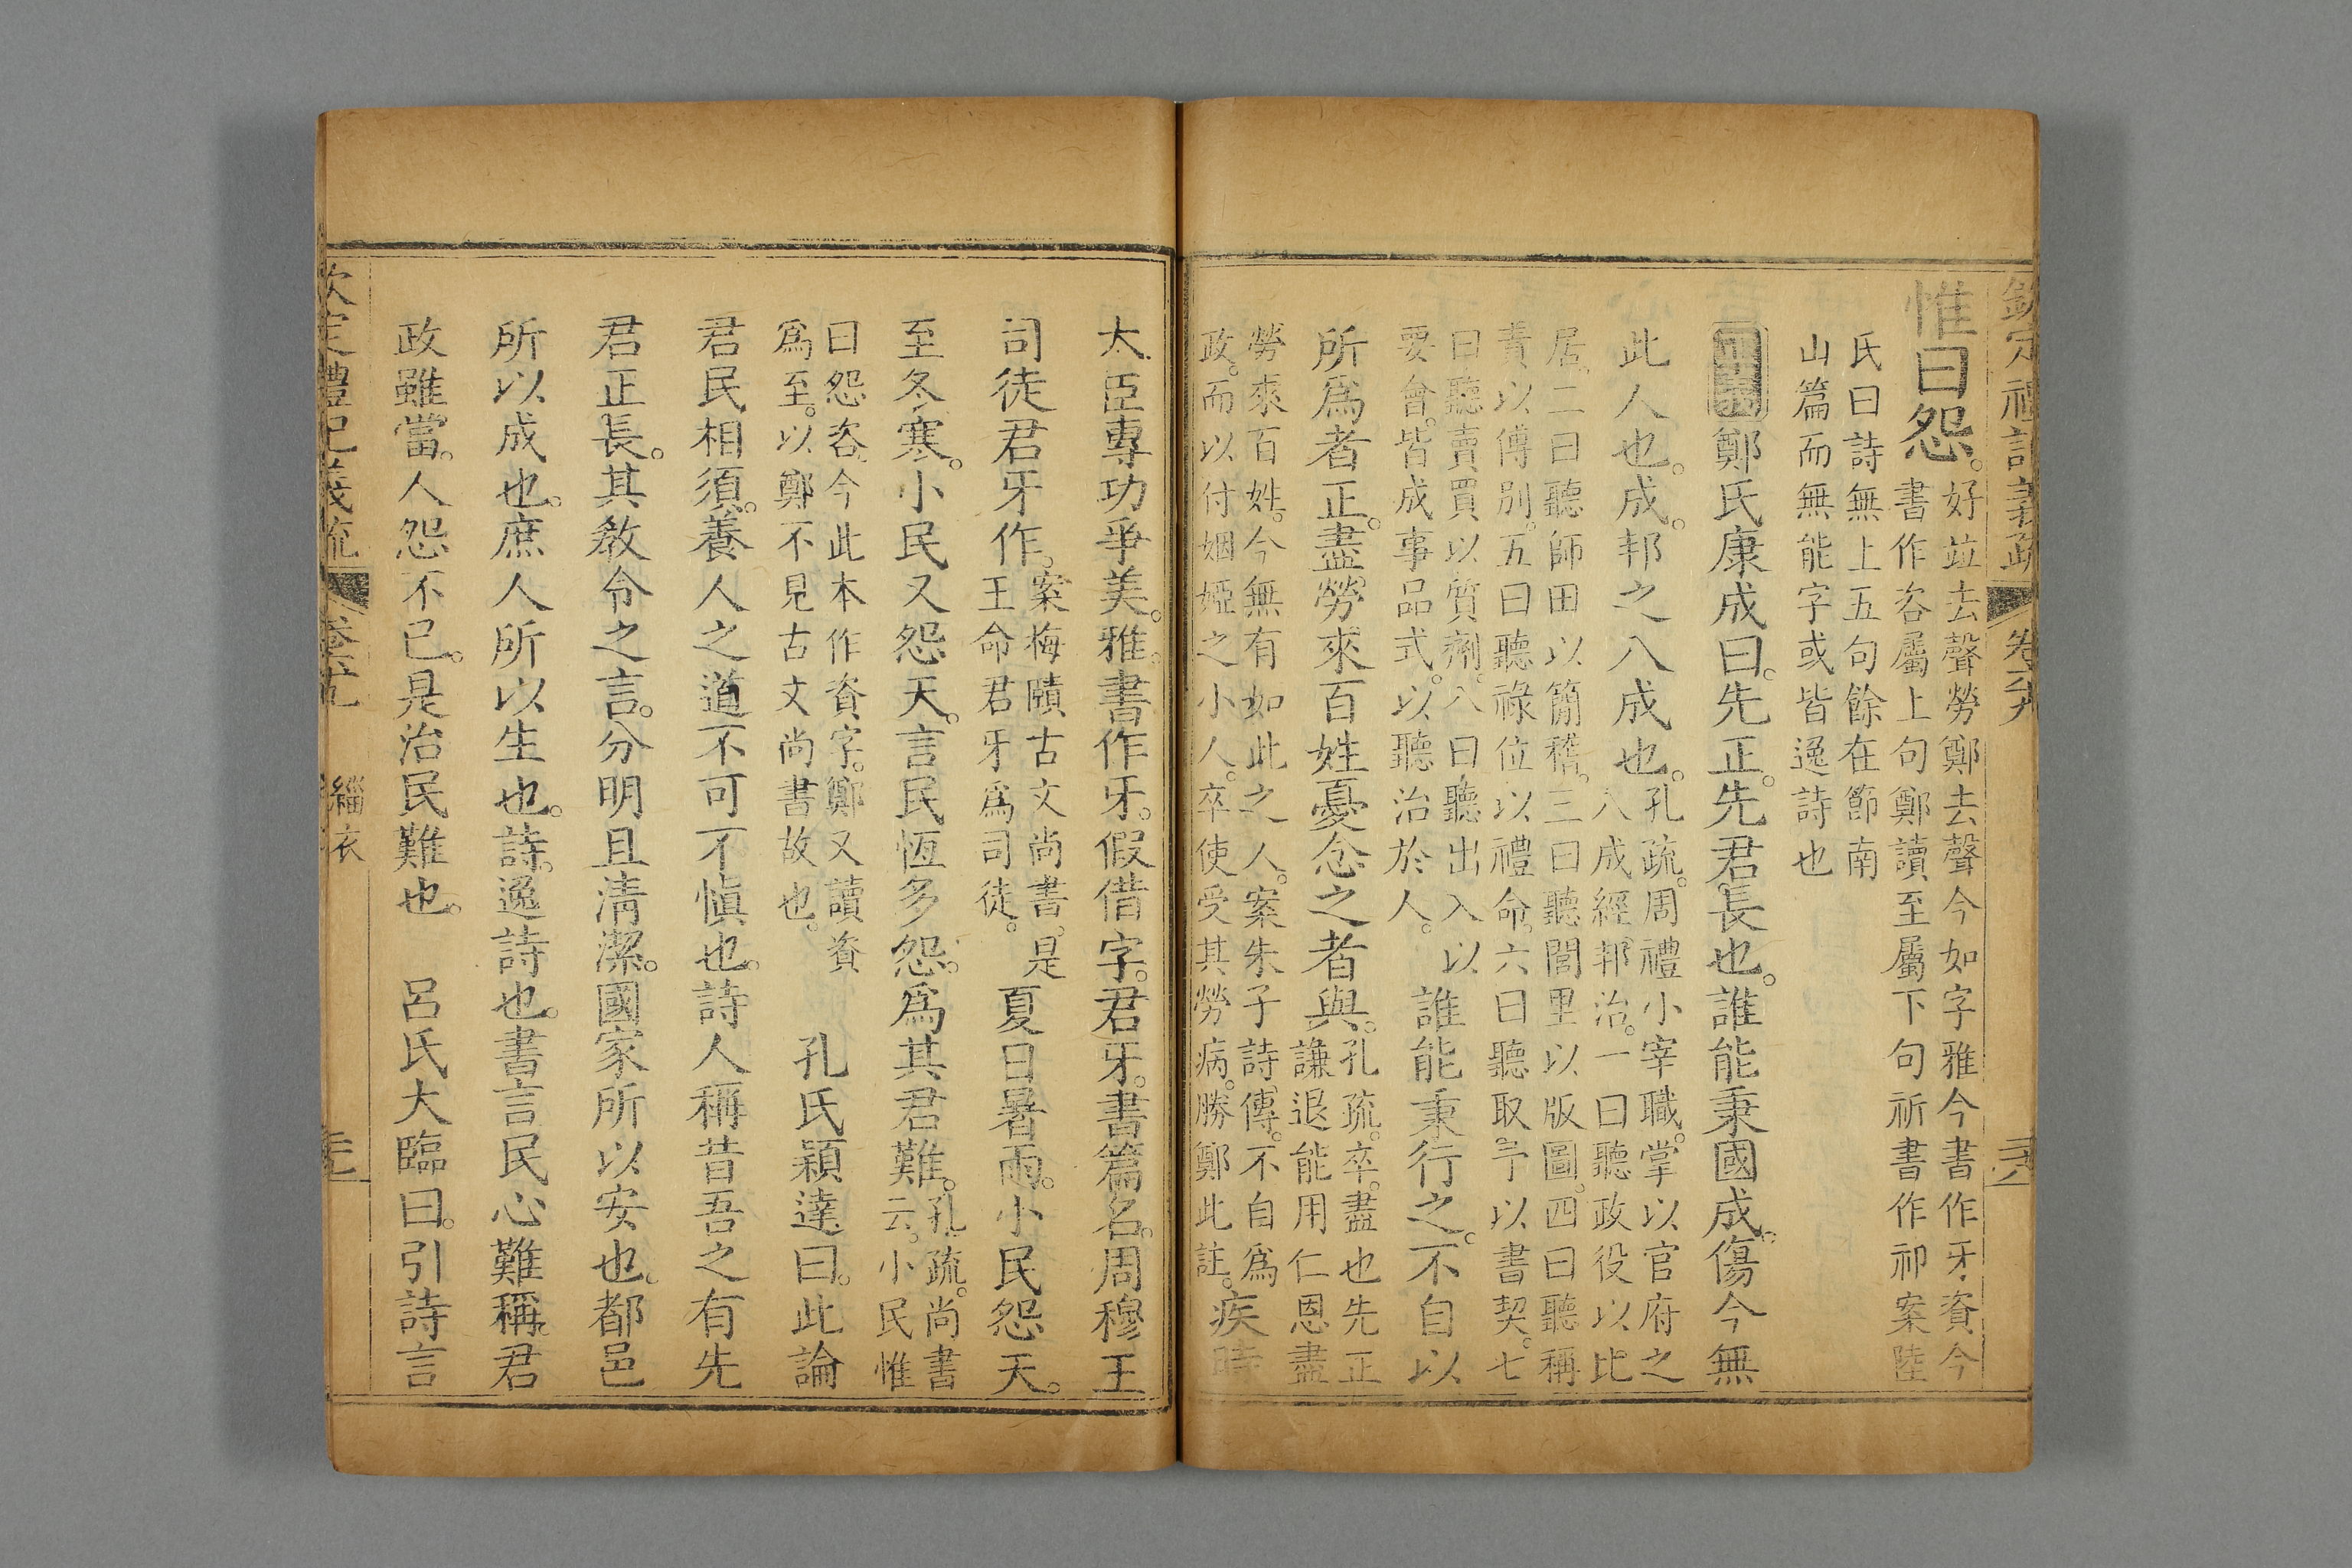 欽定禮記義疏 卷
惟曰怨。
好竝去聲勞鄭去聲今如字雅今書作牙資今
書作咨屬上句鄭讀至屬下句祈書作祁案陸
氏曰詩無上五句餘在節南
山篇而無能字或皆逸詩也
鄭氏康成曰。先正。先君長也。誰能秉國成。傷今無
此人也。成。邦之八成也。
孔疏。周禮小宰職。掌以官府之
八成經邦治。一曰聽政役以比
居。二曰聽師田以簡稽。三曰聽閭里以版圖。四曰聽稱
責以傅別。五曰聽祿位以禮命。六曰聽取予以書契。七
曰聽賣買以質劑。八曰聽出入以
要會。皆成事品式。以聽治於人。
誰能秉行之。不自以
所爲者正。盡勞來百姓憂念之者與。
孔疏。卒。盡也先正
謙退能用仁恩盡
勞來百姓。今無有如此之人。案朱子詩傳。不自爲
政。而以付姻婭之小人。卒使受其勞病。勝鄭此註。
疾時
太臣專功爭美。雅。書作牙。假借字。君牙。書篇名。周穆王
司徒君牙作。
案梅賾古文尚書。是
王命君牙爲司徒。
夏日暑雨。小民怨天。
至冬寒。小民又怨天。言民恆多怨。爲其君難。
孔疏。尚書
云。小民惟
曰怨咨。今此本作資字。鄭又讀資
爲至。以鄭不見古文尚書故也。
孔氏穎達曰。此論
君民相須。養人之道不可不愼也。詩人稱昔吾之有先
君正長。其敎令之言。分明且淸潔。國家所以安也。都邑
所以成也。庶人所以生也。詩。逸詩也。書言民心難稱。君
政雖當。人怨不已。是治民難也。 呂氏大臨曰。引詩言
欽定禮記義疏 緇衣